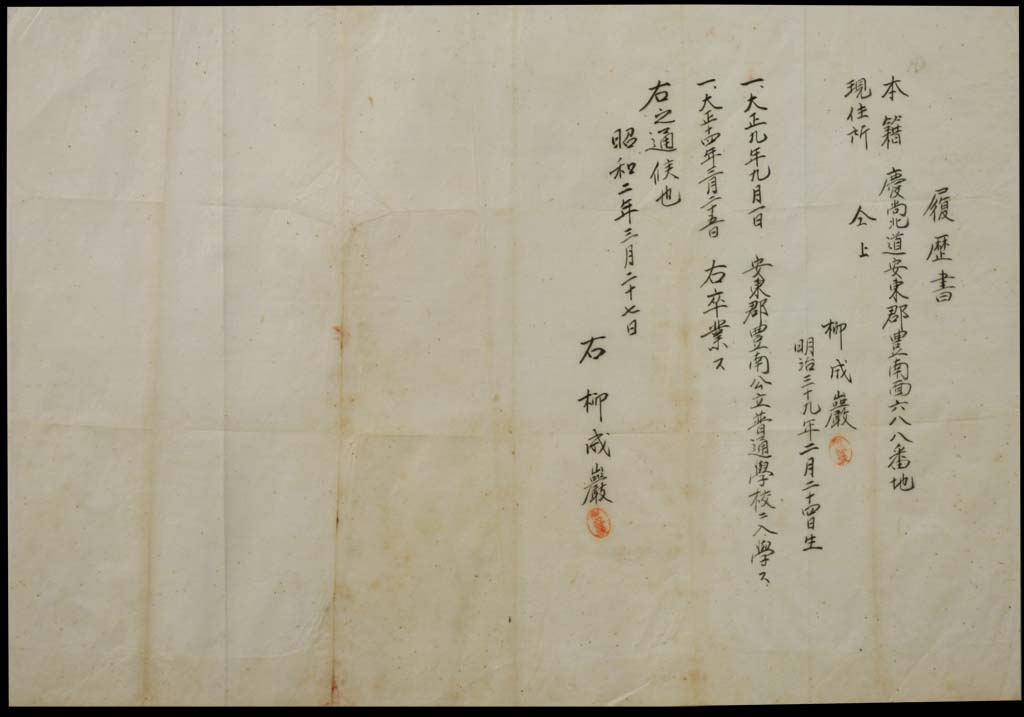 履歴書
本籍 慶尚北道安東郡豊南面六八八番地
現住所 仝上
柳成巖
明治三十九年二月二十四日生
一、大正九年九月一日 安東郡豊南公立普通學校ニ入學ス
一、大正十四年三月二十五日 右卒業ス
右之通候也
昭和二年三月二十七日
右 柳成巖